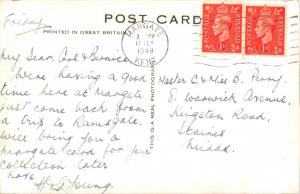 Friday.
POST CARD
PRINTED IN GREAT BRITAIN
MARGATE
KENT
12 JLY
1948
POSTAGE REVENUE
POSTAGE REVENUE
THIS IS A REAL PHOTOGRAPH
My Dear Carl & Bernice
We are having a good
time here at Margate
just come back from
a trip to Ramsgate.
Will bring you a
margate card for your
collection later
love
H. G. Young.
Master C & Miss B. Perry
8. Warwick Avenue,
Kingston Road,
Staines
Middx.